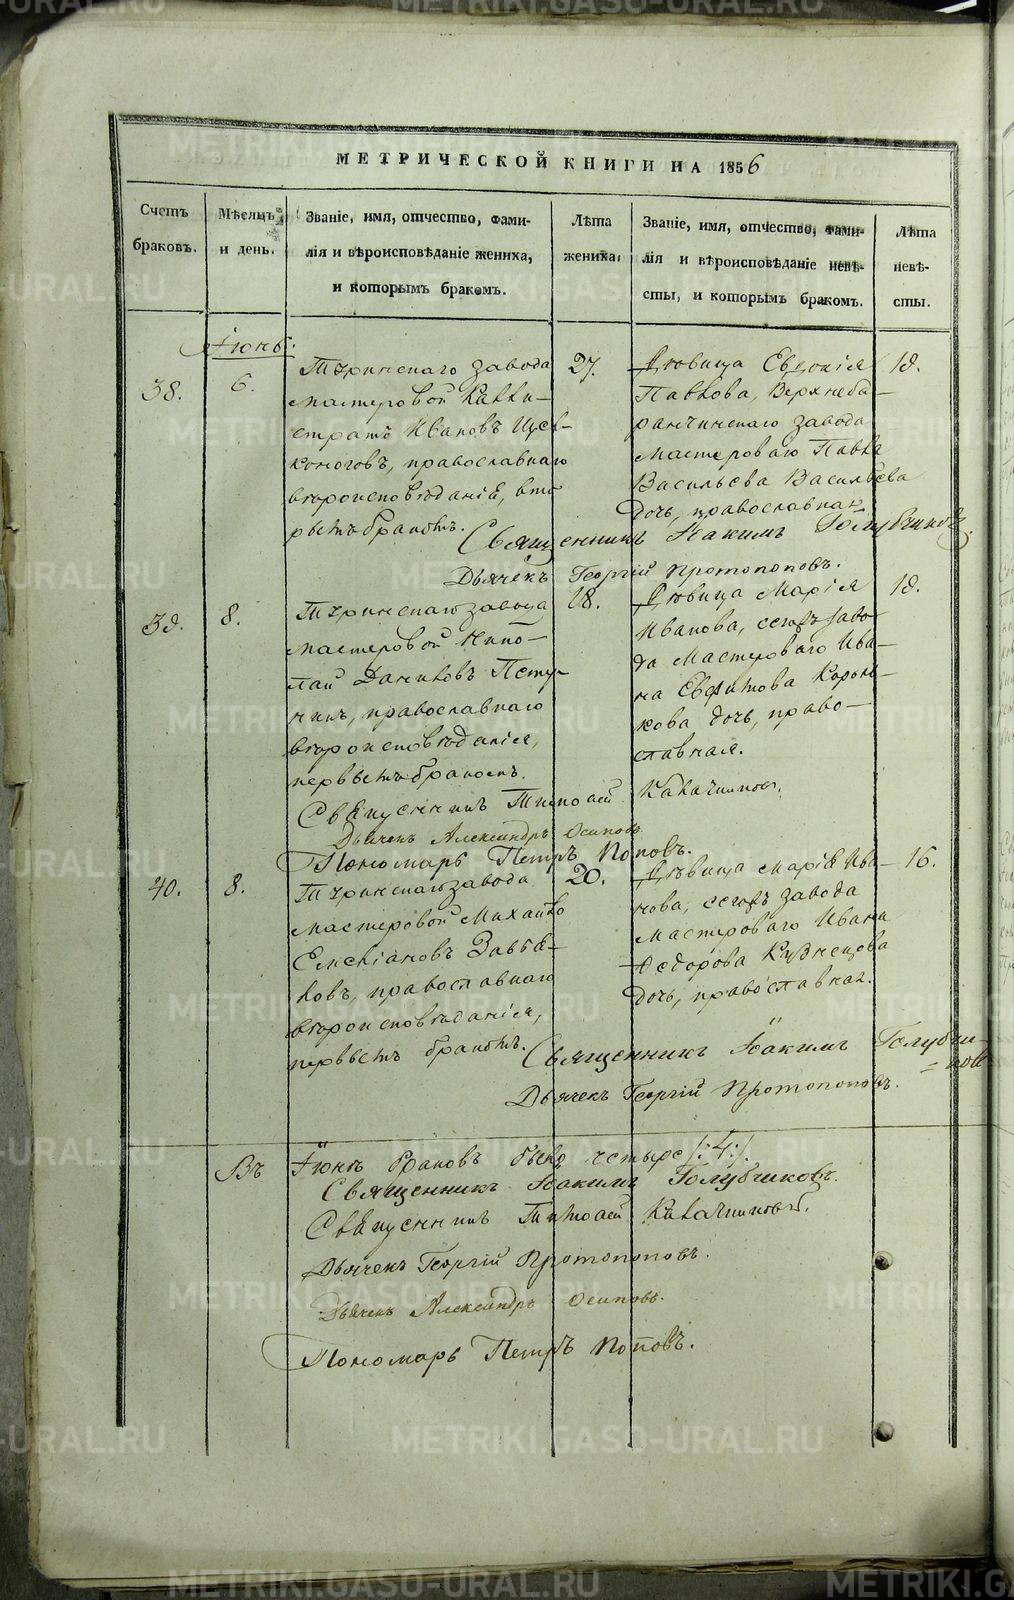 МЕТРИЧЕСКОЙ КНИГИ НА 1856
Счетъ браковъ.
Мѣсяцъ и день.
Званіе, имя, отчество, фами-
лія и вѣроисповѣданіе жениха,
и которымъ бракомъ.
Лѣта жениха.
Званіе, имя, отчество, фами-
лія и вѣроисповѣданіе невѣ-
сты, и которымъ бракомъ.
Лѣта невѣ-
сты.
Іюнь.
38.
6.
Туринскаго завода
мастеровой Калли-
стратъ Ивановъ
православнаго
вѣроисповѣданія, вто
рымъ бракомъ.
27.
Дѣвица Евдокія
Павлова, Верхнеба-
ранчинскаго завода
Мастероваго Павла
Васильева Васильева
дочь, православная
18.
Священникъ Іоакимъ Голубчиковъ.
Дьячекъ Георгій Протопоповъ.
39.
8.
Туринскаго завода
мастеровой Нико-
лай Даниловъ
православнаго
вѣроисповѣданія,
первымъ бракомъ.
18.
Дѣвица Марія
Иванова, сегожъ заво-
да Мастероваго Ива-
на Евфимова Король-
кова дочь, право-
славная.
18.
Священникъ Тимоѳей
Дьячекъ Александръ Осиповъ
Пономарь Петръ Поповъ.
40.
8.
Туринскаго завода
мастеровой Михаило
Емеліановъ
православнаго
вѣроисповѣданія,
первымъ бракомъ.
20.
Дѣвица Марія Ива-
нова, сегожъ завода
Мастероваго Ивана
Ѳедорова Кузнецова
дочь, православная.
16.
Священникъ Іоакимъ Голубчи-
=ковъ
Дьячекъ Георгій Протопоповъ.
Въ Іюнѣ браковъ было четыре /:4:/.
Священникъ Іоакимъ Голубчиковъ.
Священникъ Тимоѳей
Дьячекъ Георгій Протопоповъ.
Дьячекъ Александръ Осиповъ.
Пономарь Петръ Поповъ.
METRIKI.GASO-URAL.RU